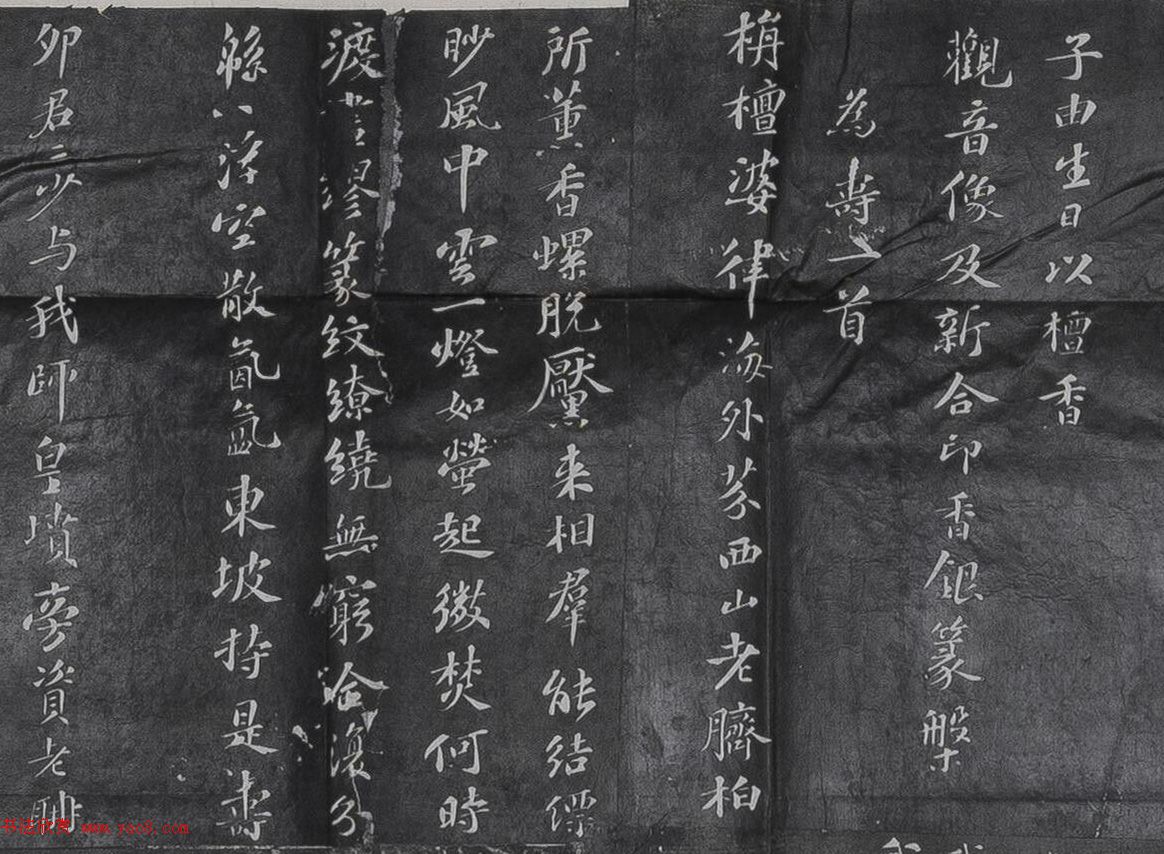 子由生日以檀香
觀音像及新合印香銀篆槃
為壽一首
栴檀婆律海外芬西山老臍柏
所薰香螺脫黶來相羣能結縹
眇風中雲一燈如螢起微焚何時
度盡繆篆紋繚繞無窮合復分
緜八浮空散氤氳東坡持是壽
卯君少与我師皇墳旁資老聃
www.yac8.com